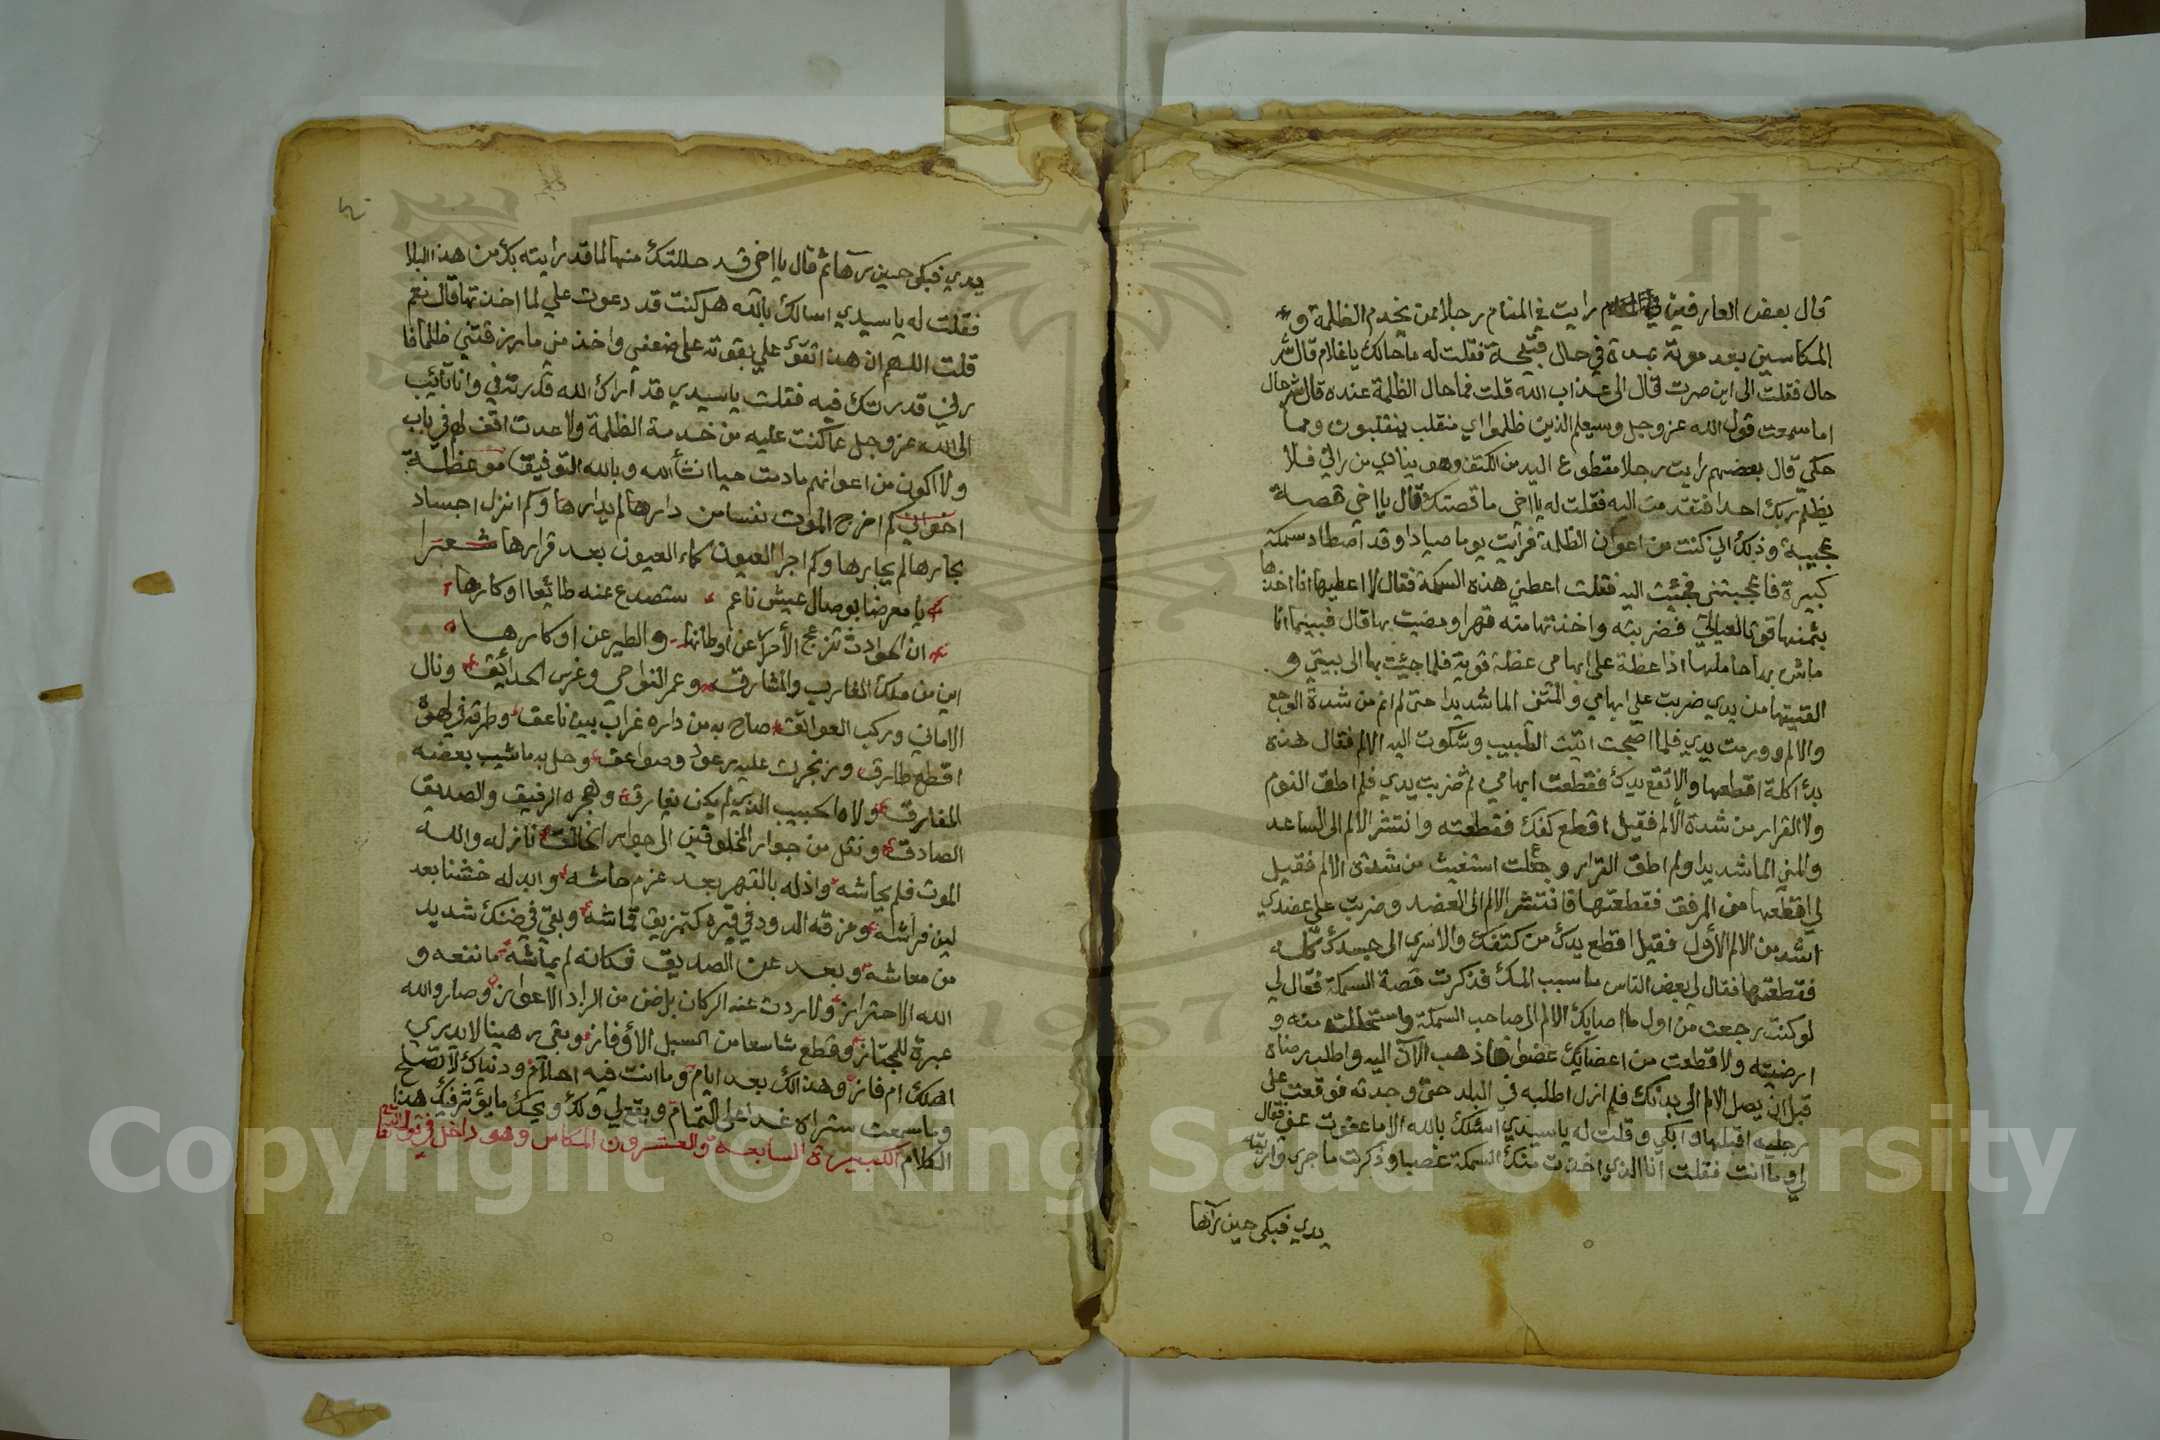 قال بعض العارفين رايت في المنام رجلا ممن يخدم الظلمة و
المكاسين بعد موته بمدة في حال قبيحة فقلت له ما حالك يا غلام قال شر
حال فقلت الى اين صرت قال الى عذاب الله قلت فما حال الظلمة عنده قال شر حال
اما سمعت قول الله عز وجل وسيعلم الذين ظلموا اي منقلب ينقلبون ومما
حكي قال بعضهم رايت رجلا مقطوع اليد من الكتف وهو ينادي من راني فلا
يظلم احدا فتقدمت اليه فقلت له يا اخي ما قصتك قال يا اخي قصة
عجيبة وذلك اني كنت من اعوان الظلمة فرأيت يوما صيادا وقد اصطاد سمكة
كبيرة فاعجبتني فجئت اليه فقلت اعطني هذه السمكة فقال لا اعطيها انا اخذ
بثمنها قوتا لعيالي فضربته واخذتها منه قهرا ومضيت بها قال فبينما انا
ماش بها حاملها اذا عضة على ابهامي عظة قوية فلما جئت بها الى بيتي و
القيتها من يدي ضربت على ابهامي والمتني الما شديدا حتى لم انم من شدة الوجع
والالم وورمت يدي فلما اصبحت اتيت الطبيب وشكوت اليه الالم فقال هذه
بدء اكلة اقطعها والا تقع يدك فقطعت ابهامي ثم ضربت يدي فلم اطق النوم
ولا القرار من شدة الالم فقيل اقطع كفك فقطعته وانتشر الالم الى الساعد
والمني الما شديدا ولم اطق القرار وجعلت استغيث من شدة الالم فقيل
لي اقطعها من المرفق فقطعتها فانتشر الالم الى العضد وضربت على عضدي
اشد من الالم الأول فقيل اقطع يدك من كتفك والا سرى الى جسدك كله
فقطعتها فقال لي بعض الناس ما سبب المك فذكرت قصة السمكة فقال لي
لو كنت رجعت من اول ما اصابك الالم الى صاحب السمكة واستحللت منه و
ارضيته ولا قطعت من اعضائك عضوا فاذهب الآن اليه واطلب رضاه
قبل ان يصل الالم الى بدنك فلم ازل اطلبه في البلد حتى وجدته فوقعت على
رجليه اقبلها وابكي وقلت له يا سيدي اسئلك بالله الا ما عفوت عني فقال
لي وما انت فقلت انا الذي اخذت منك السمكة غصبا وذكرت ما جرى واريته
يدي فبكى حين رآها
يدي فبكى حين رآها ثم قال يا اخي قد حللتك منها لما قد رايته بك من هذا البلا
فقلت له يا سيدي اسالك بالله هل كنت قد دعوت علي لما اخذتها قال نعم
قلت اللهم ان هذا تقوى علي بقوته على ضعفي واخذ مني ما رزقتني ظلما فا
رني قدرتك فيه فقلت يا سيدي قد أراك الله قدرته في وانا تائب
الى الله عز وجل عما كنت عليه من خدمة الظلمة ولا عدت اقف لهم في باب
ولا اكون من اعوانهم ما دمت حيا انشاء الله وبالله التوفيق موعظة
اخواني كم اخرج الموت نفسا من دارها لم يدارها وكم انزل اجساد
بجارها لم يجارها وكم اجرا العيون كماء العيون بعد قرارها شعرا
يا معرضا بوصال عيش ناعم ستصدع عنه طائعا او كارها
ان الحوادث تزعج الأحرار عن أوطانها والطير عن اوكارها
اين من ملك المغارب والمشارق وعمر النواحي وغرس الحدائق ونال
الاماني وركب العوائق صاح به من داره غراب بين ناعق وطرقه في لهوه
اقطع طارق وزنجرت عليه رعود وصواعق وحل به ما شيب بعضه
المفارق ولاه الحبيب الذي لم يكن يفارق وهجره الرفيق والصديق
الصادق ونقل من جوار المخلوقين الى جوار الخالق نازله والله
الموت فلم يحاشه واذله بالقهر بعد عزم جاشه وابدله خشنا بعد
لين فراشه ومزقه الدود في قبره كتمزيق قماشه وبقي في ضنك شديد
من معاشه وبعد عن الصديق فكانه لم يماشه ما نفعه و
الله الاحتراز ولا ردت عنه الركان بل ضن من الزاد الاعواز وصار والله
عبرة للمجتاز وقطع شاسعا من السبل الاوفاز وبقي رهينا لا يدري
اهلك ام فاز وهذا لك بعد ايام وما انت فيه احلام ودنياك لا تصلح
وما سمعت ستراه غدا على التمام ويقع لي ولك ويحك ما يؤثر فيك هذا
الكلام الكبيرة السابعة والعشرون المكاس وهو داخل في قوله